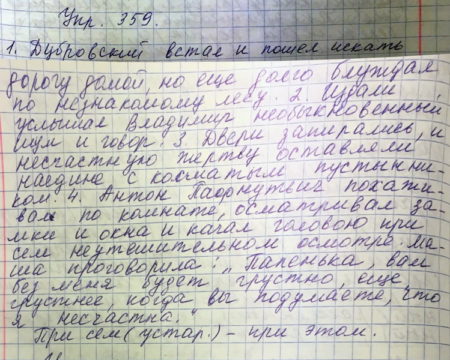 Упр. 359.
1. Дубровский встал и пошел искать
дорогу домой, но еще долго блуждал
по незнакомому лесу. 2. Издали
услышал Владимир необыкновенный
шум и говор. 3. Двери запирались, и
несчастную жертву оставляли
наедине с косматым пустынни-
ком. 4. Антон Пафнутьич похажи-
вал по комнате, осматривал за-
мки и окна и качал головою при
сем неутешительном осмотре. Ма-
ша проговорила: „Папенька, вам
без меня будет грустно, еще
грустнее, когда вы подумаете, что
я несчастна."
При сем (устар.) - при этом.